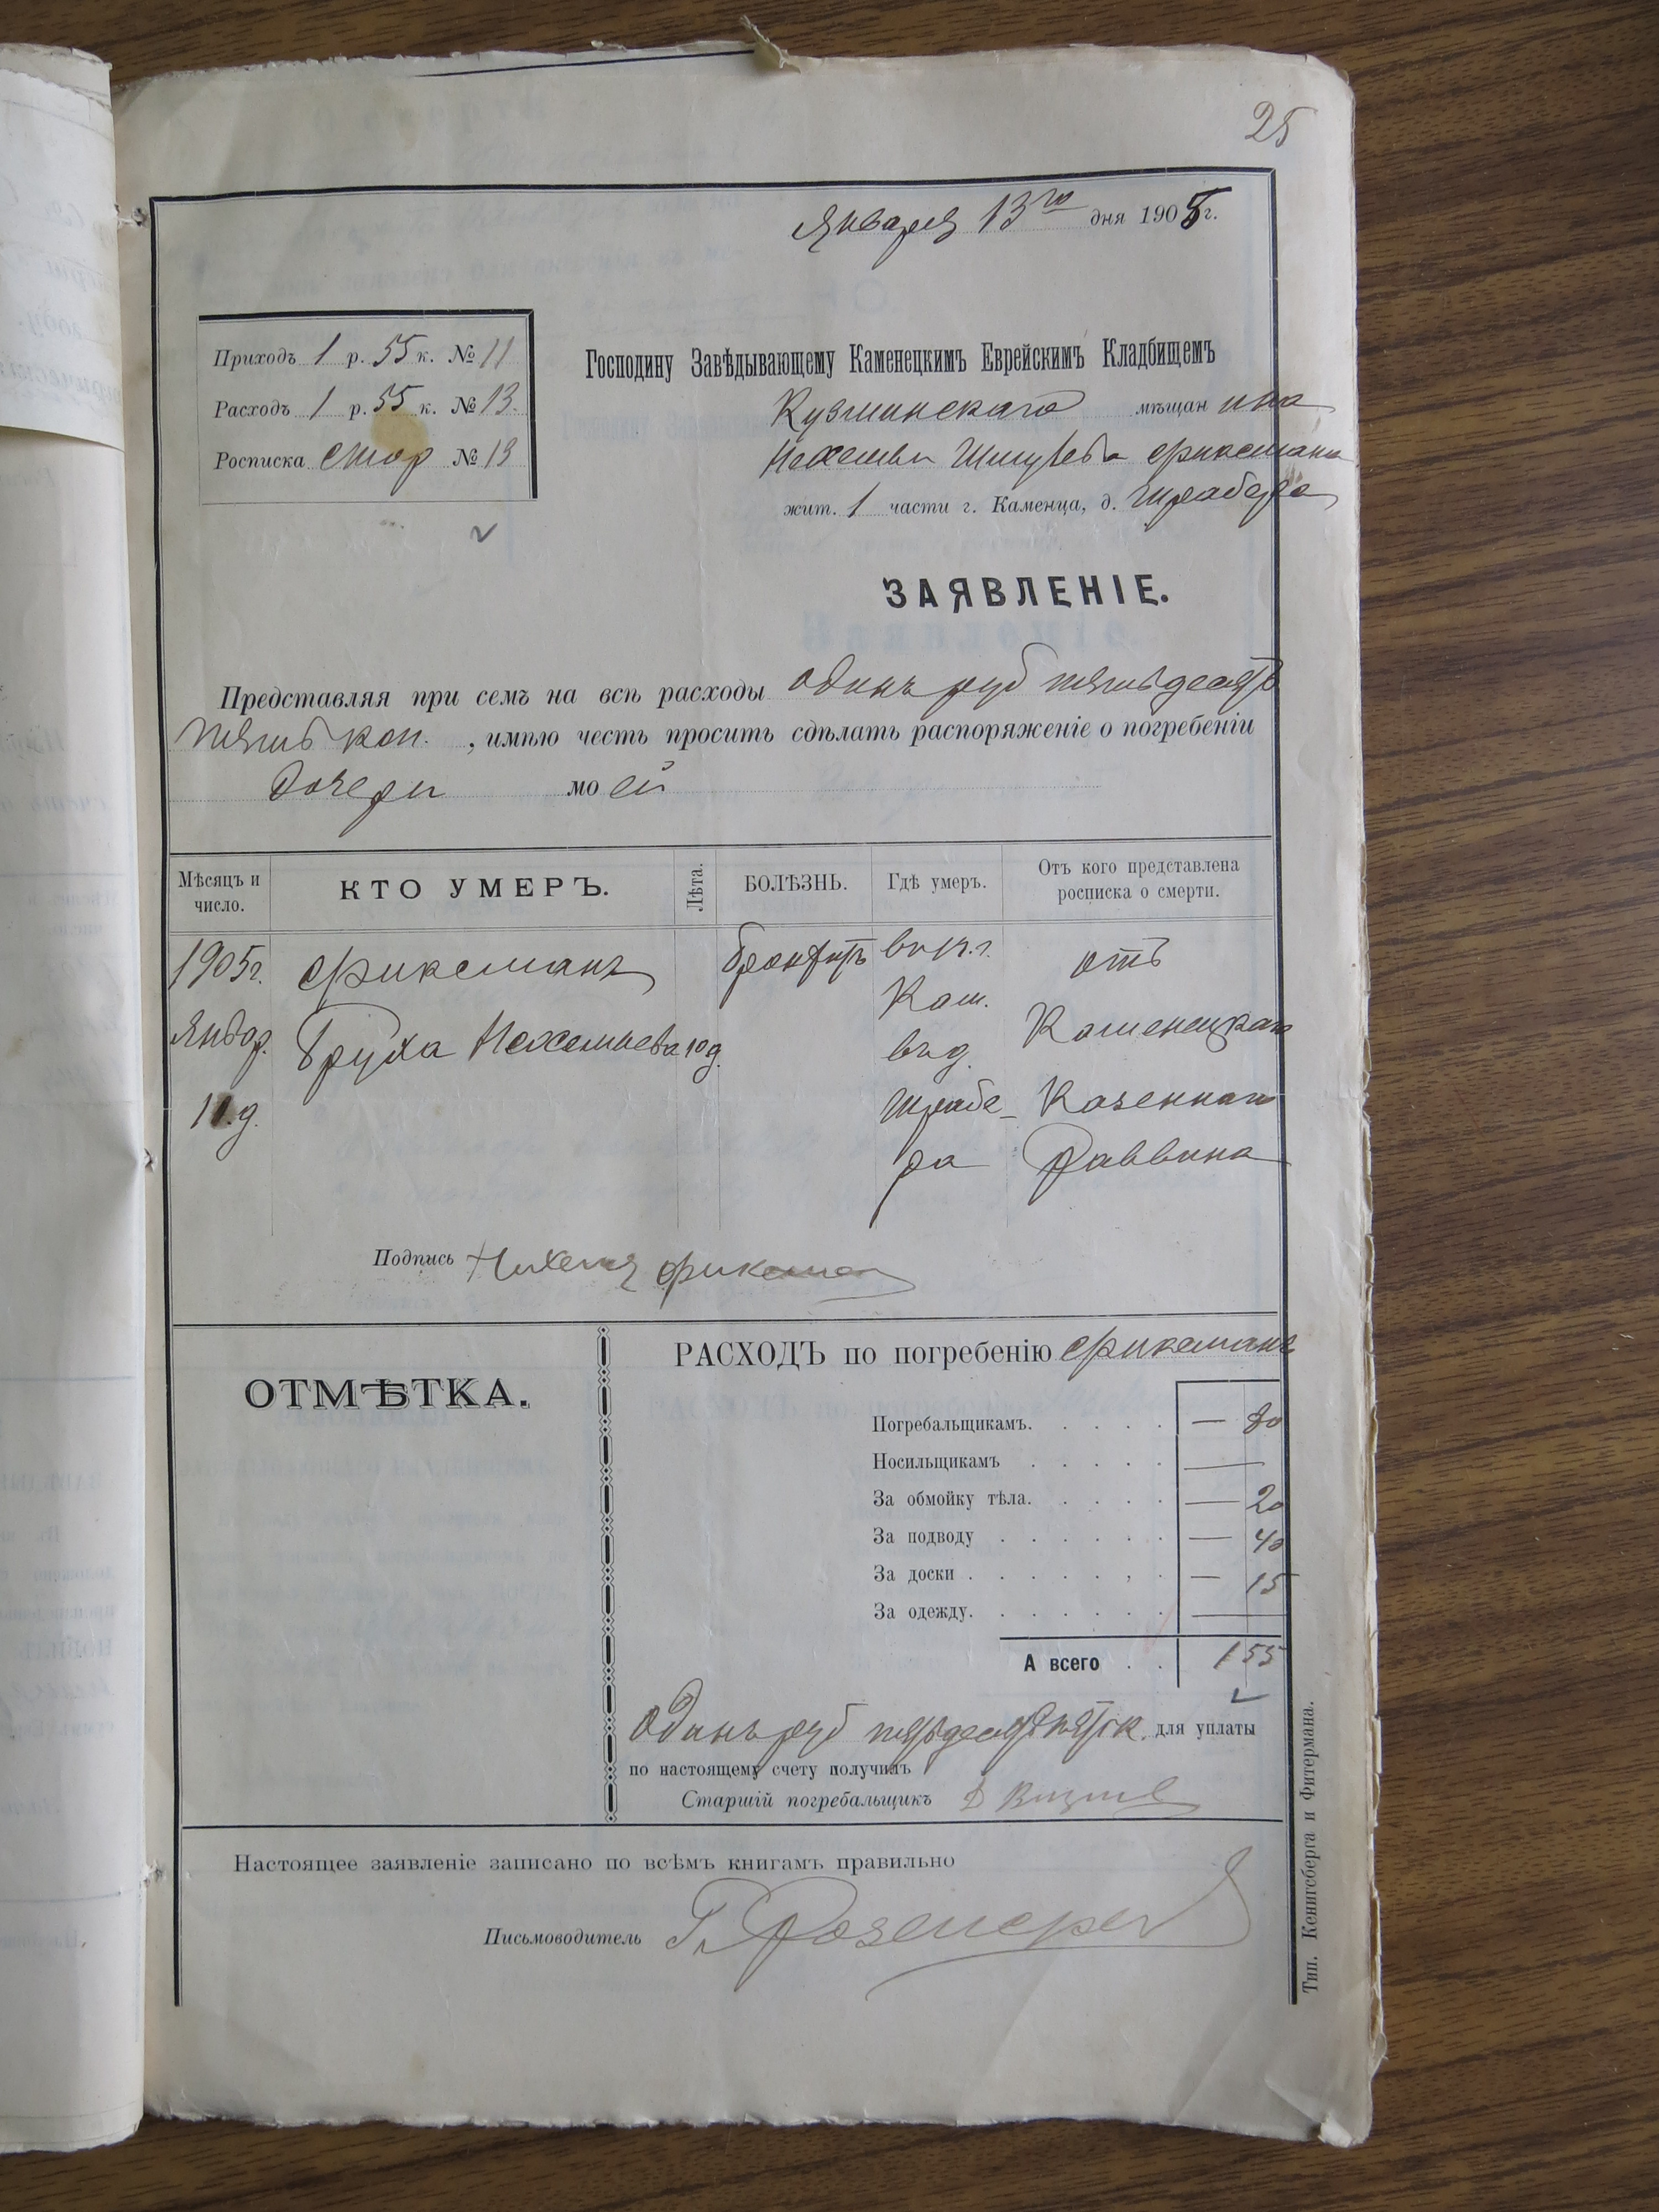 25
Января 13го дня 1905 г.
Приходъ 1 р. 55 к. № 11
Расходъ 1 р. 55 к. № 13.
Росписка стор № 13
Господину Завѣдывающему Каменецкимъ Еврейскимъ Кладбищемъ
Кузминскаго мѣщанина
Нехемьи Фиксмана
жит. 1 части г. Каменца, д. Шрабера
ЗАЯВЛЕНІЕ.
Представляя при семъ на всѣ расходы одинъ руб пятьдесятъ
пять коп. , имѣю честь просить сдѣлать распоряженіе о погребеніи
дочери моей
Мѣсяцъ и число.
КТО УМЕРЪ.
Лѣта.
БОЛѢЗНЬ.
Гдѣ умеръ.
Отъ кого представлена росписка о смерти.
1905г. Фиксманъ бронхитъ отъ
Январ. Бруха Нехемьева 10д. Кам. Каменецкаго
11.д. въ д. Шрабе- Казеннаго
ра Раввина
Подпись Нихемя Фиксман
ОТМѢТКА.
РАСХОДЪ по погребенію Фиксманъ
Погребальщикамъ. — 80
Носильщикамъ —
За обмойку тѣла. — 20
За подводу — 40
За доски — 15
За одежду. —
А всего 1 55
Одинъ руб пятьдесятъ пять к. для уплаты
по настоящему счету получилъ
Старшій погребальщикъ
Настоящее заявленіе записано по всѣмъ книгамъ правильно
Письмоводитель
Тип. Кенигсберга и Фитермана.